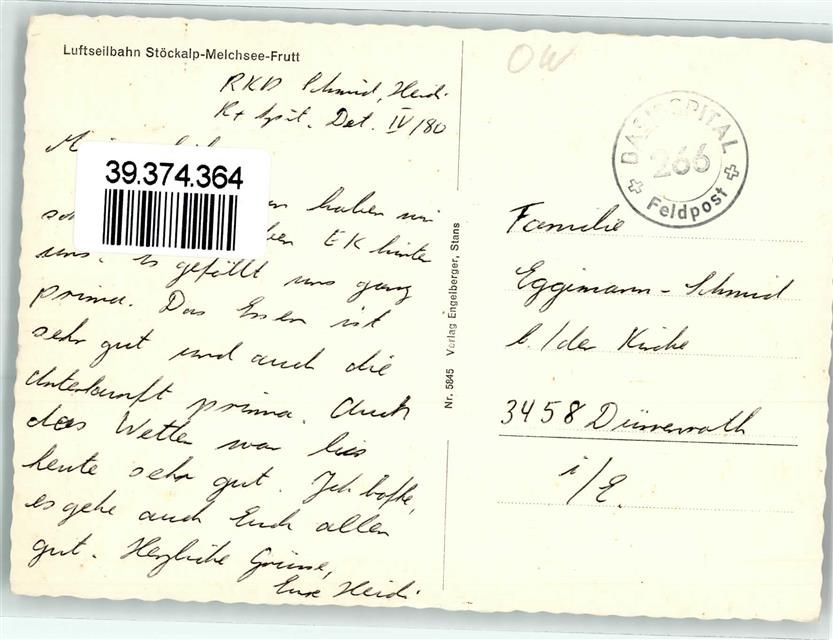 Luftseilbahn Stöckalp-Melchsee-Frutt
RKD Schmid, Heidi
R+ Spit. Det. IV/80
39.374.364
haben wir
EK hinter
uns. Es gefällt uns ganz
prima. Das Essen ist
sehr gut und auch die
Unterkunft prima. Auch
das Wetter war bis
heute sehr gut. Ich hoffe,
es gehe auch Euch allen
gut. Herzliche Grüsse,
Eure Heidi
Nr. 5845 Verlag Engelberger, Stans
OW
BASISSPITAL
266
Feldpost
Familie
Eggimann-Schmid
b./der Kirche
3458 Dürrenroth
i/E.